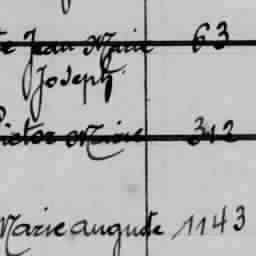 Jean Marie 63
Joseph
Victor Marie 312
Marie auguste 1143